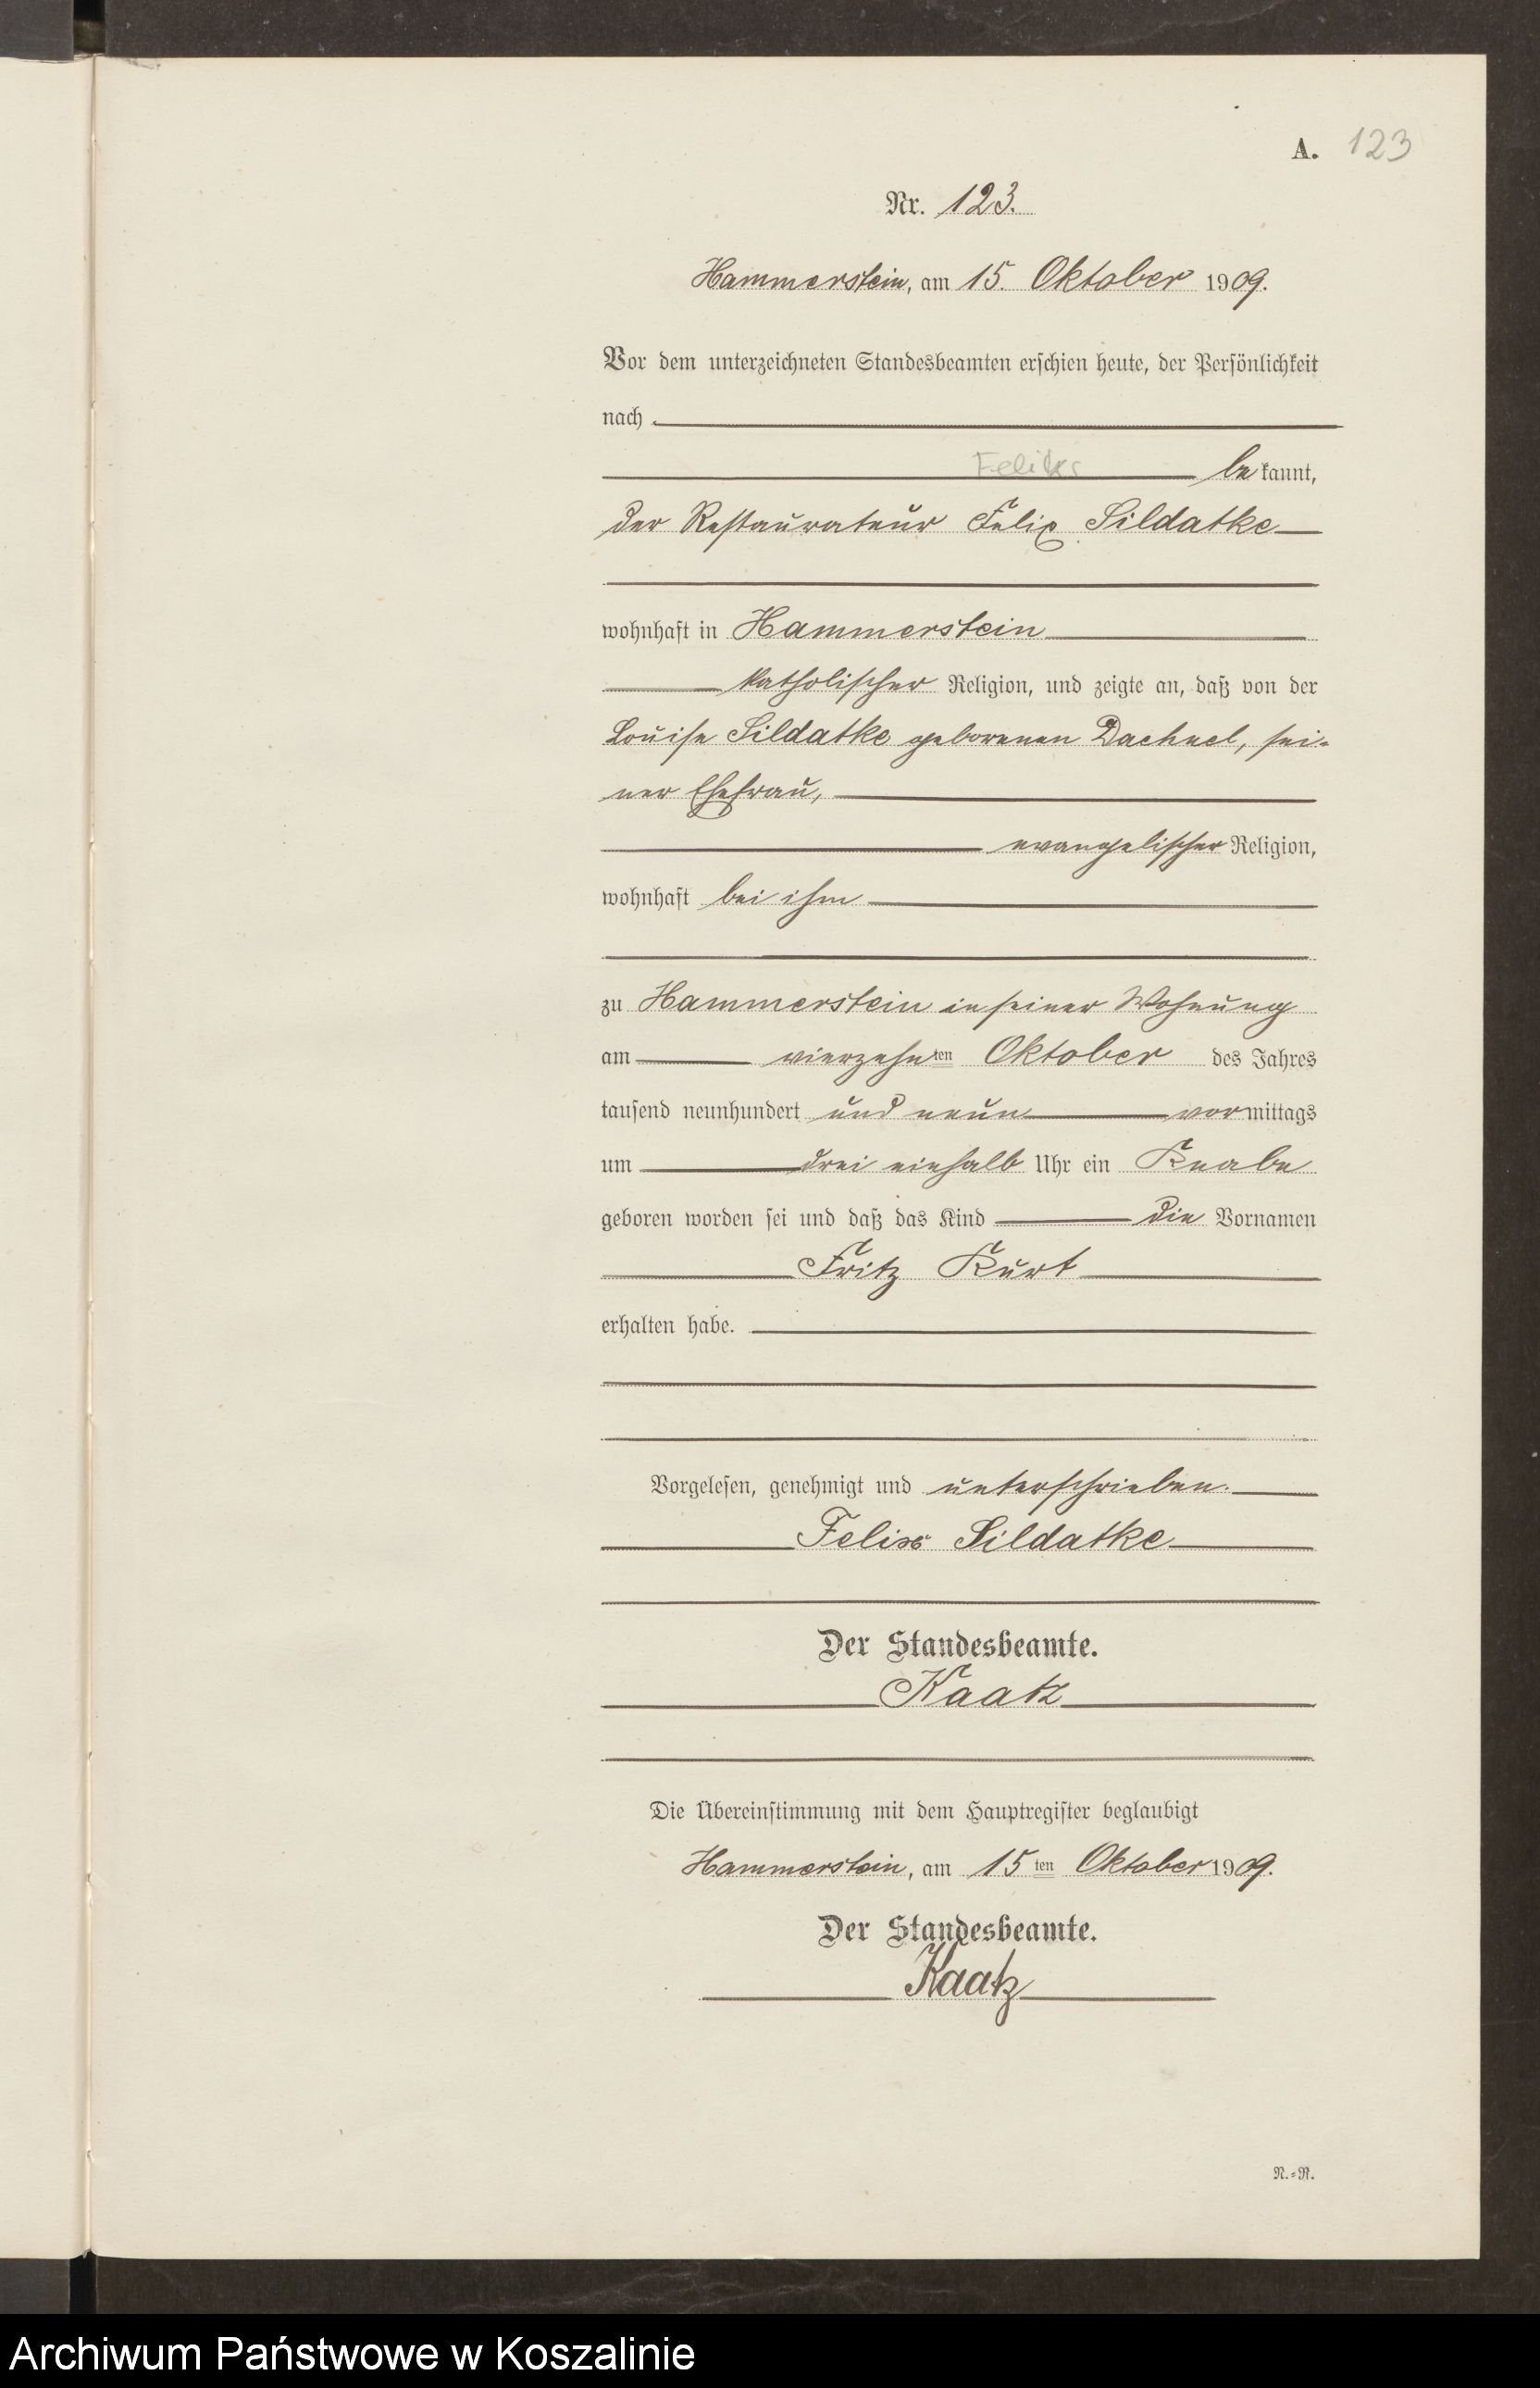 A. 123
Nr. 123.
Hammerstein, am 15. Oktober 1909.
Vor dem unterzeichneten Standesbeamten erschien heute, der Persönlichkeit
nach
Feliks bekannt,
der Restaurateur Felix Sildatke
wohnhaft in Hammerstein
katholischer Religion, und zeigte an, daß von der
Louise Sildatke geborenen Dachnel, sei-
ner Ehefrau,
evangelischer Religion,
wohnhaft bei ihm
zu Hammerstein in seiner Wohnung
am vierzehnten Oktober des Jahres
tausend neunhundert und neun vormittags
um drei einhalb Uhr ein Knabe
geboren worden sei und daß das Kind die Vornamen
Fritz Kurt
erhalten habe.
Vorgelesen, genehmigt und unterschrieben.
Felix Sildatke
Der Standesbeamte.
Kaatz
Die Übereinstimmung mit dem Hauptregister beglaubigt
Hammerstein, am 15ten Oktober 1909.
Der Standesbeamte.
Kaatz
N.=N.
Archiwum Państwowe w Koszalinie